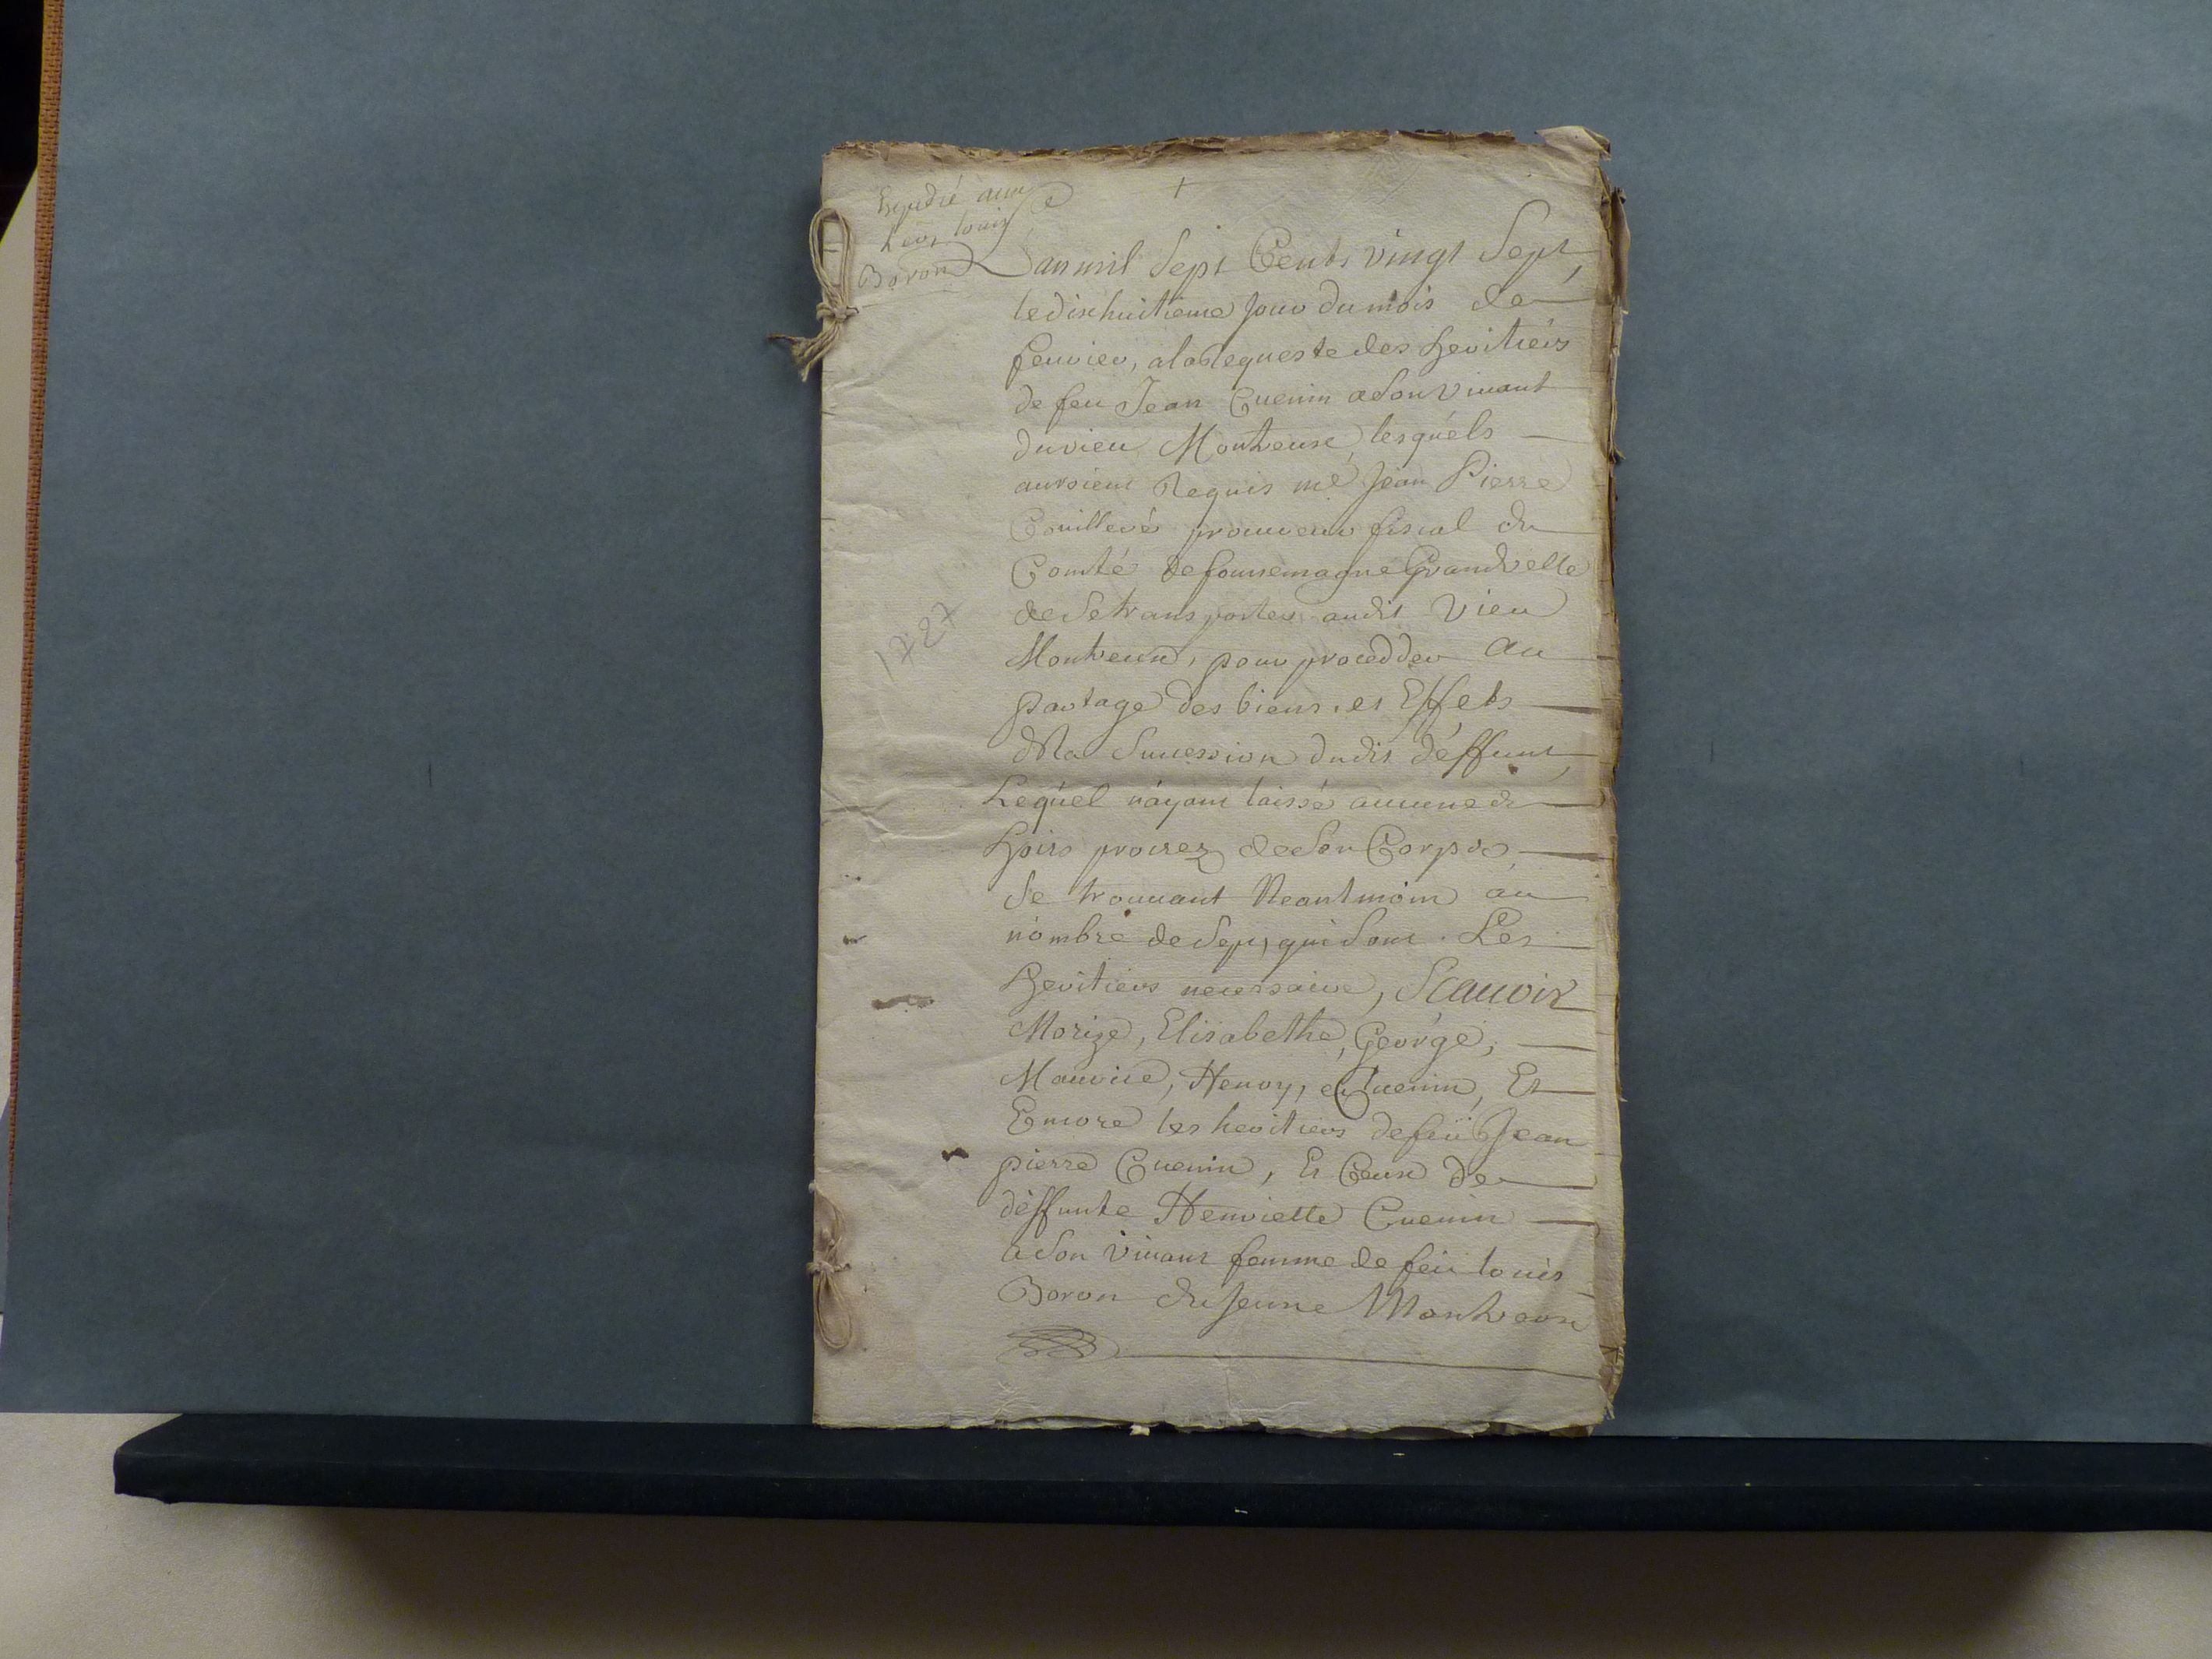 Expedié aux
her, Louis
Boron
Lan mil Sept Cents vingt Sept,
le dixhuitieme Jour du mois de
feuvier, ala Requeste des heritiérs
de feu Jean Cuenin a Son Viuant
du vieu Montreux, lesquéls
auroient Requis me Jean Pierre
Cuillerè procureur fiscal du
Comté de foussemagne Grandvelle
de Se transporter audit Vieu
Montreux, pour procedder au
partage des biens et Effets
de la Sucession dudit déffunt,
Lequel n'áyant laissé aucune de
hoirs procrez de Son Corps,
Se trouuant Neantmoin au
nombre de Sept, qui Sont Les
heritiers necessaire, Scauoir
Morize, Elisabethe, George,
Maurice, Henry, Cuenin, Et
Encore les heritiers de feü Jean
pierre Cuenin, Et Ceux de
déffunte Henriette Cuenin
a Son viuant femme de feü Louis
Boron du Jeune Montreux
1727